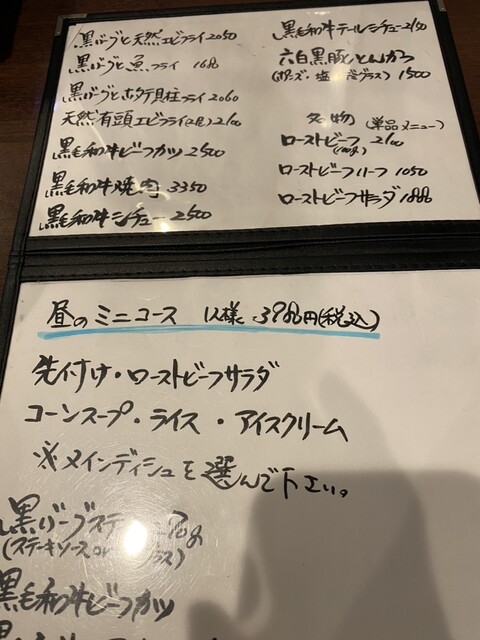 黒バーグと天然エビフライ2050
黒バーグと魚フライ 1680
黒バーグとホタテ貝柱フライ2060
天然有頭エビフライ(2尾)2100
黒毛和牛ビーフカツ 2500
黒毛和牛焼肉 3350
黒毛和牛シチュー 2500
黒毛和牛テールシチュー2150
六白黒豚とんかつ
1500
名物 (単品メニュー)
ローストビーフ 2100
ローストビーフハーフ 1050
ローストビーフサラダ 1880
昼のミニコース 1人様 3980円(税込)
先付け・ローストビーフサラダ
コーンスープ・ライス・アイスクリーム
※メインディシュを選んで下さい。
黒バーグステ 170g
(ステーキソース or
黒毛和牛ビーフカツ